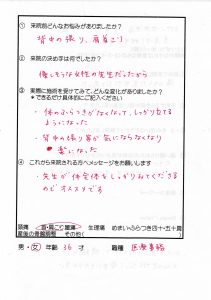 ① 来院前どんなお悩みがありましたか?
背中の張り、肩首こり
② 来院の決め手は何でしたか?
優しそうな女性の先生だったから
③ 実際に施術を受けてみて、どんな変化がありましたか?
*できるだけ具体的にご記入ください
・体のふらつきがなくなって、しっかり立てる
ようになった
・背中の張り等が気にならなくなり
楽になった
④ これから来院される方へメッセージをお願いします
・先生が体全体をしっかりみてくださる
のでオススメです
頭痛 首・肩こり 腰痛 生理痛 めまい ふらつき 四十・五十肩
産後の骨盤調整 その他(
男・女 年齢 36 才 職種 医療事務